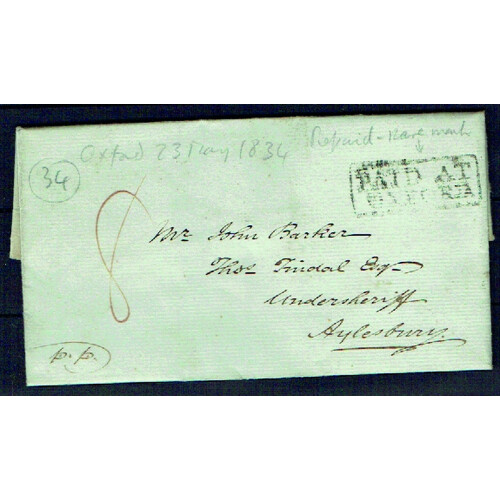 Oxford 23 May 1834
Prepaid - rare mark
34
PAID AT
OXFORD
8
Mr John Barker
Thos Tindal Esq
Undersheriff
Aylesbury
p.p.